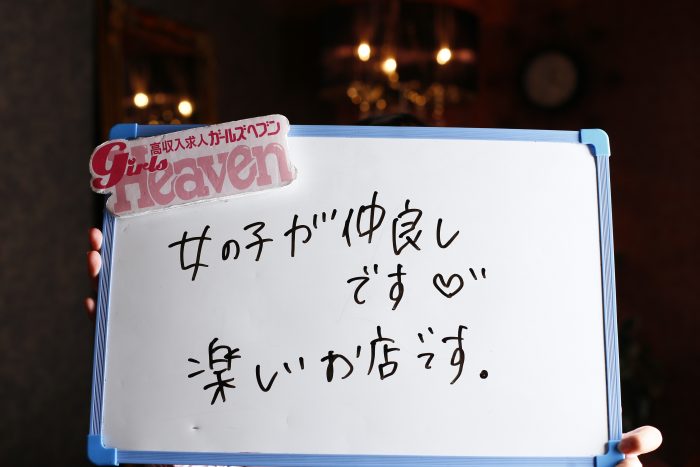 高収入求人ガールズヘブン
Girls
Heaven
女の子が仲良し
です♡"
楽しいお店です。